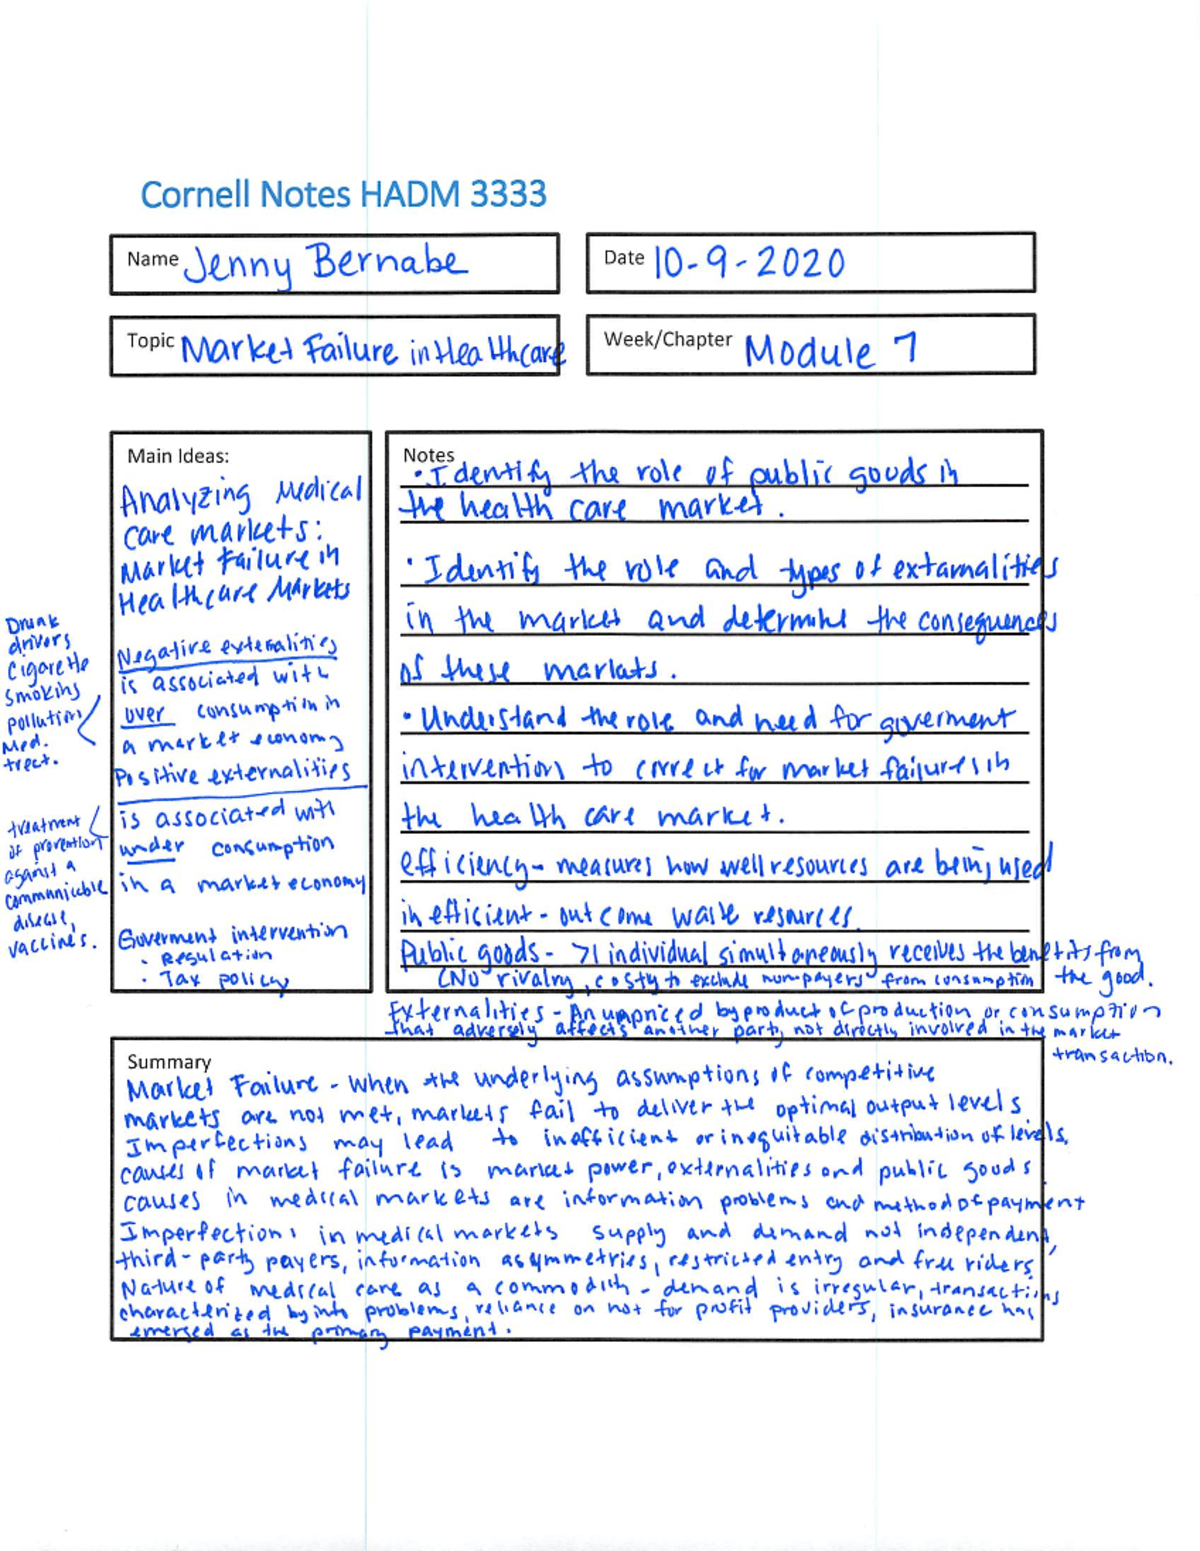 Cornell Notes HADM 3333
Name Jenny Bernabe
Date 10-9-2020
Topic Market Failure in Healthcare
Week/Chapter Module 7
Main Ideas:
Analyzing Medical
Care Markets:
Market Failure in
Healthcare Markets
Negative externalities
is associated with
over consumption in
a market economy
Positive externalities
is associated with
under consumption
in a market economy
Goverment intervention
• Regulation
• Tax policy
Drunk
drivers
Cigarette
smoking
pollution
Med.
treat.
treatment
of prevention
against a
communicable
disease,
vaccines.
Notes
• Identify the role of public goods in
the health care market.
• Identify the role and types of externalities
in the market and determine the consequences
of these markets.
• Understand the role and need for goverment
interventions to correct for market failures in
the health care market.
efficiency - measures how well resources are being used
inefficient - outcome waste resources.
Public goods - >1 individual simultaneously receives the benefits from
(No rivalry, costy to exclude nonpayers from consumption the good.
Externalities - An unpriced byproduct of production or consumption
that adversely affects another party not directly involved in the market
transaction.
Summary
Market Failure - when the underlying assumptions of competitive
markets are not met, markets fail to deliver the optimal output levels.
Imperfections may lead to inefficient or inequitable distribution of levels.
causes of market failure is market power, externalities and public goods.
causes in medical markets are information problems and method of payment
Imperfections in medical markets supply and demand not independent,
third-party payers, information asymmetries, restricted entry and free riders.
Nature of medical care as a commodity - demand is irregular, transactions
characterized by info problems, reliance on not for profit providers, insurance has
emerged as the primary payment.